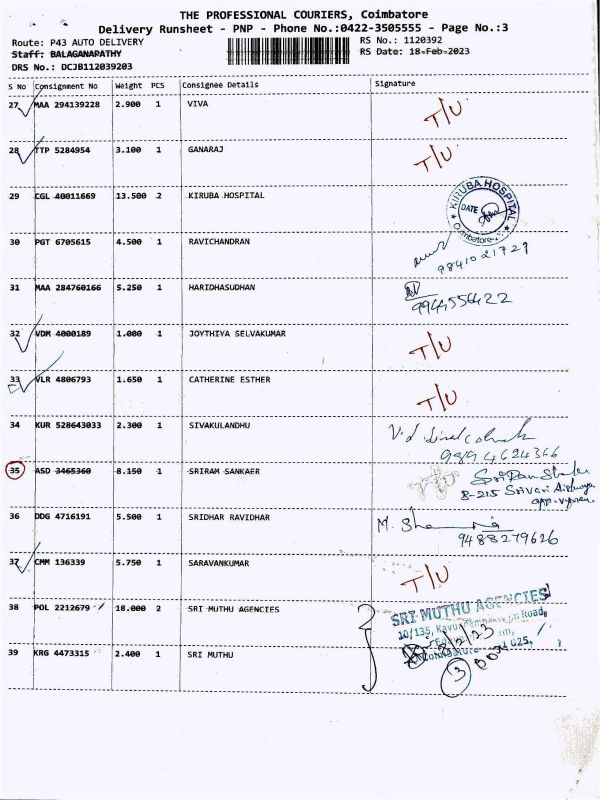 THE PROFESSIONAL COURIERS, Coimbatore
Delivery Runsheet - PNP - Phone No.:0422-3505555 - Page No.:3
Route: P43 AUTO DELIVERY RS No.: 1120392
Staff: BALAGANAPATHY RS Date: 18-Feb-2023
DRS No.: DCJB112039203
S No Consignment No Weight PCS Consignee Details Signature
27 MAA 294139228 2.900 1 VIVA T/U
28 TTP 5284954 3.100 1 GANARAJ T/U
29 CGL 40011669 13.500 2 KIRUBA HOSPITAL
KIRUBA HOSPITAL
DATE
Coimbatore
30 PGT 6705615 4.500 1 RAVICHANDRAN
9841021729
31 MAA 284760166 5.250 1 HARIDHASUDHAN
9944556422
32 VDM 4000189 1.000 1 JOYTHIYA SELVAKUMAR T/U
33 VLR 4806793 1.650 1 CATHERINE ESTHER T/U
34 KUR 528643033 2.300 1 SIVAKULANDHU
9894624366
35 ASD 3465360 8.150 1 SRIRAM SANKAER
8-215 Srivari
36 DDG 4716191 5.500 1 SRIDHAR RAVIDHAR
9488279626
37 CMM 136339 5.750 1 SARAVANKUMAR T/U
38 POL 2212679 18.000 2 SRI MUTHU AGENCIES
SRI MUTHU AGENCIES
10/135, Road,
025.
39 KRG 4473315 2.400 1 SRI MUTHU
3 BOX